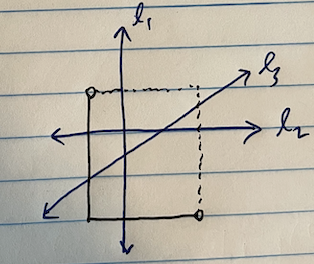 ℓ₁
ℓ₃
ℓ₂